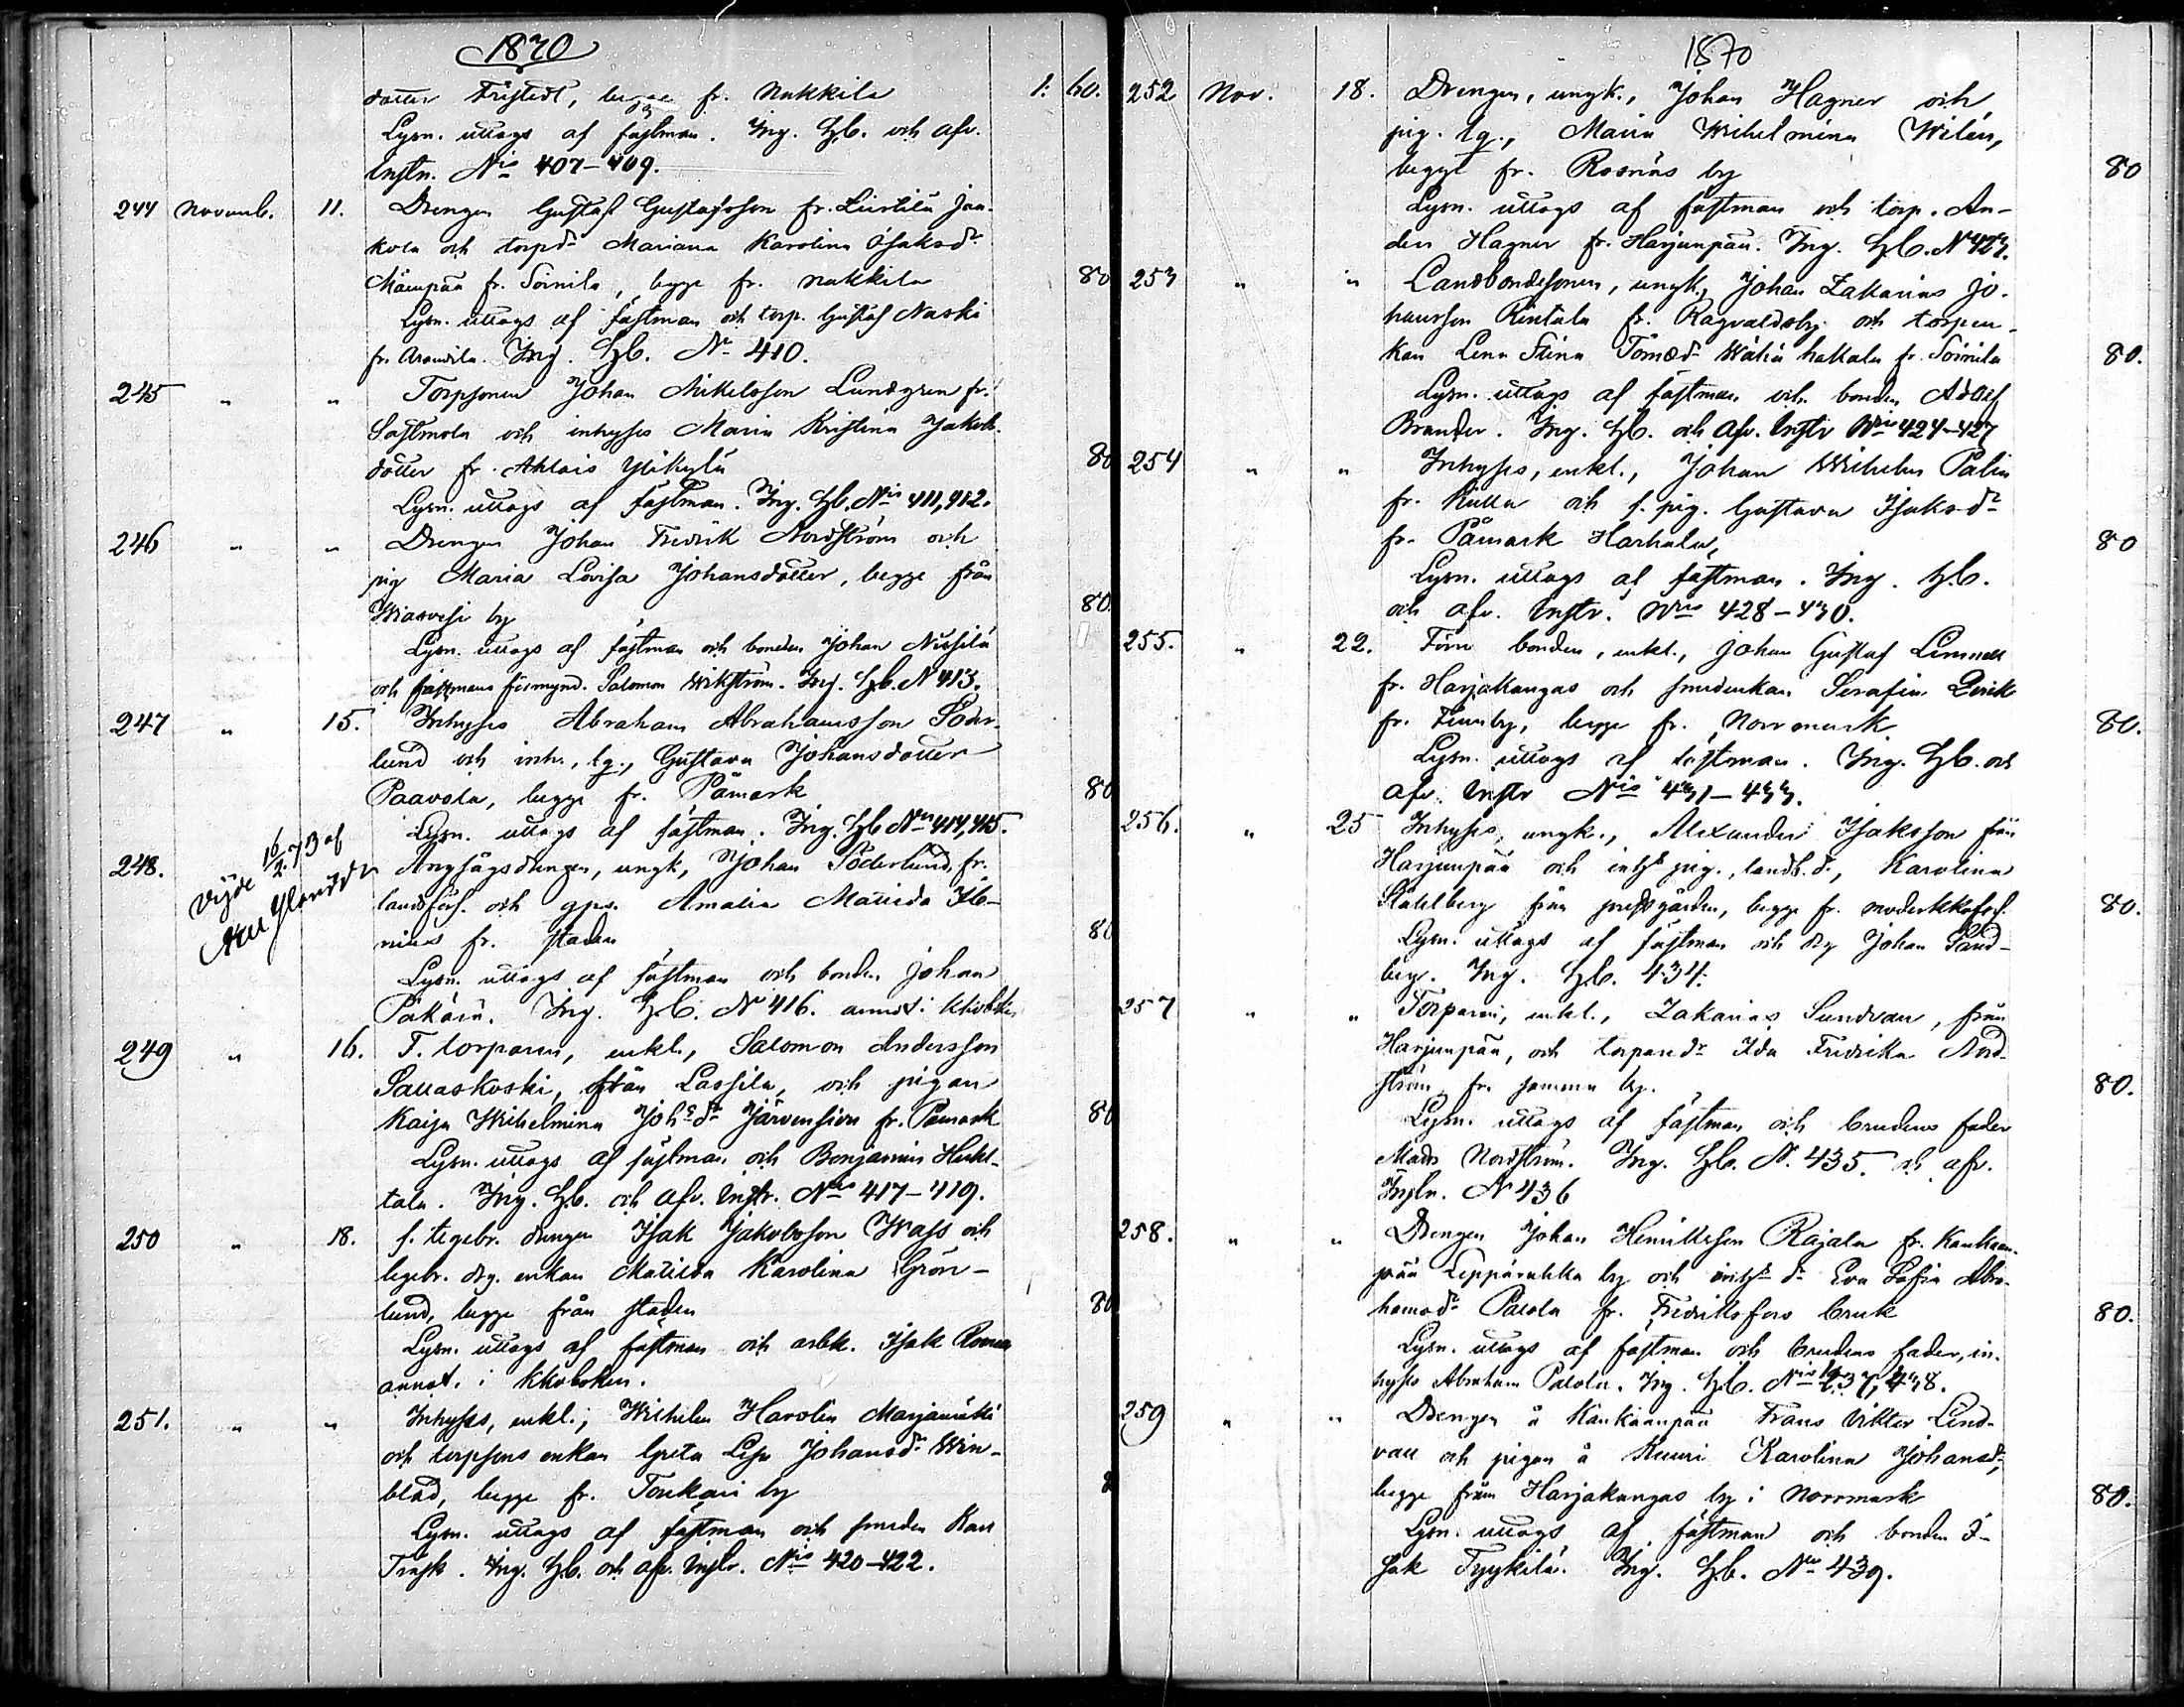 1870
dotter Fristedt, begge fr. Nakkila 1: 60.
Lysn. uttogs af fästman. Ing. Hb. och afv.
Instr. No 407–409.
244 Novemb. 11. Drengen Gustaf Gustafsson fr. Leistilä Jaa-
kola och torpd:r Mariana Karolina Isaksd:r
Mäenpää fr. Soinila, begge fr. Nakkila 80
Lysn. uttogs af fästman och torp. Gustaf Naski
fr. Arantila. Ing. Hb. No 410.
245 " " Torpsonen Johan Mikelsson Lundgren fr.
Sastmola och inhyses Maria Kristina Jakobs-
dotter fr. Ahlais Ylikylä 80
Lysn. uttogs af fästman. Ing. Hb. No 411, 412.
246 " " Drengen Johan Fredrik Nordström och
pig Maria Lovisa Johansdotter, begge från
Wiasvesi by 80
Lysn. uttogs af fästman och bonden Johan Nissilä
och fästmans förmynd. Salomon Wikström. Ing. Hb. N 413.
247 " 15. Inhyses Abraham Abrahamsson Söder-
lund och inh., lg., Gustava Johansdotter
Paavola, begge fr. Påmark 80
Lysn. uttogs af fästman. Ing. Hb No 414, 415.
248. Ångsågsdrengen, ungk, Johan Söderlund, fr.
Vigde 16/2 73 af
landsförs. och gps. Amalia Matilda
fr. staden 80
Lysn. uttogs af fästman och bonden Johan
Ing. Hb. No 416. annot. i
249 " 16. F. torparen, enkl., Salomon Andersson
Sauaskoski, från Lassila, och pigan
Kaisa Wilhelmina Joh:s d:r Järvensivu fr. Påmark 80
Lysn. uttogs af fästman och Benjamin
tala. Ing. Hb. och afv. Instr. No 417–419.
250 " 18. f. tegelbr. drengen Isak Jakobsson Wass och
tegelbr. drg. enkan Matilda Karolina Grön-
lund, begge från staden 80
Lysn. uttogs af fästman och arbk. Isak
annot. i kkoboken.
251. " " Inhyses, enkl., Wilhelm Harolin Marjamäki
och torpsons enkan Greta Lisa Johansd:r Win-
blad, begge fr. Toukari by 8
Lysn. uttogs af fästman och smeden Karl
Träsk. Ing. Hb. och afv. Instr. No 420–422.
1870
252 Nov. 18. Drengen, ungk., Johan Hagner och
pig. lg., Maria Wilhelmina Wilén,
begge fr. Rosnäs by 80
Lysn. uttogs af fästman och torp. An-
ders Hagner fr. Harjunpää. Ing. Hb. N 423.
253 " " Landbondesonen, ungk., Johan Zakarias Jo-
hansson Rintala fr. Ragvaldsby och torpen-
kan Lena Stina Tomasd:r Wähä hakkala fr. Soinila 80.
Lysn. uttogs af fästman och bonden Adolf
Brander. Ing. Hb. och afv. Instr No 424–427
254 " " Inhyses, enkl., Johan Wilhelm Palin
fr. Kulla och f. pig. Gustava Isaksd:r
fr. Påmark Harhala, 80
Lysn. uttogs af fästman. Ing. Hb.
och afv. Instr. No 428–430.
255. " 22. Förre bonden, enkl., Johan Gustaf Limnell
fr. Harjakangas och smedenkan Serafia
fr. Finnby, begge fr. Norrmark 80.
Lysn. uttogs af fästman. Ing. Hb. och
afv. Instr No 431–433.
256. " 25 Inhyses, ungk., Alexander Isaksson från
Harjunpää och inhys pig., landb. d., Karolina
Ståhlberg från prestgården, begge fr. moderkkoförs. 80.
Lysn. uttogs af fästman och drg Johan Sand-
berg. Ing. Hb. 434.
257 " " Torparen, enkl., Zakarias Sundvall, från
Harjunpää, och torpared:r Ida Fredrika Nord-
ström, fr. samma by. 80.
Lysn. uttogs af fästman och brudens fader
Mats Nordström. Ing. Hb. N. 435. och afv.
Instr. N 436
258. " " Drengen Johan Henriksson Rajala fr. Kankaan-
pää Leppäruhka by och inhys d:r Eva Sofia Abra-
hamsd:r Palola fr. Fredriksfors bruk 80.
Lysn. uttogs af fästman och brudens fader, in-
hyses Abraham Palola. Ing. Hb. No 437, 438.
259 " " Drengen å Kankaanpää Frans Viktor Lind-
vall och pigan å Ruuri Karolina Johansd:r,
begge från Harjakangas by i Norrmark 80.
Lysn. uttogs af fästman och bonden I-
sak Tyykilä. Ing. Hb. No 439.